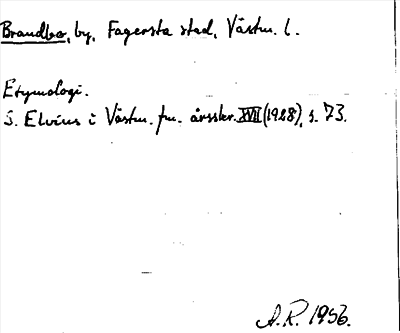 Brandbo, by, Fagersta stad, Västm. l.
Etymologi.
S. Elvius i Västm. fm. årsskr. XVII (1928), s. 73.
A.R. 1956.